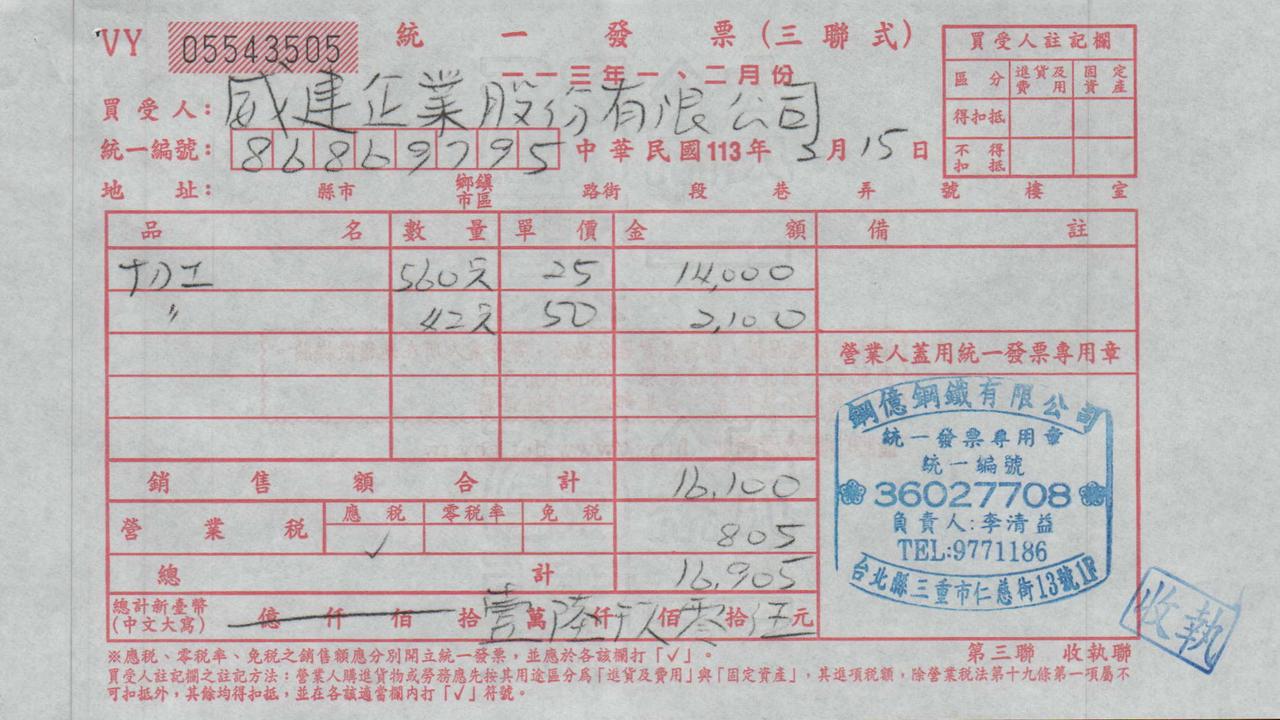 VY 05543505 統一發票(三聯式)
一一三年一、二月份
買受人註記欄
區分 進貨及費用 固定資產
得扣抵
不得扣抵
買受人: 威建企業股份有限公司
統一編號: 86869795 中華民國113年 3月 15日
地址: 縣市 鄉鎮市區 路街 段 巷 弄 號 樓 室
品名 數量 單價 金額 備註
切工 560元 25 14,000
〃 42元 50 2,100
營業人蓋用統一發票專用章
銷售額合計 16,100
營業稅 應稅 零稅率 免稅
✓ 805
總計 16,905
總計新臺幣(中文大寫) 億 仟 佰 拾 壹萬 陸仟 佰 零拾 伍元
鋼億鋼鐵有限公司
統一發票專用章
統一編號
36027708
負責人:李清益
TEL:9771186
台北縣三重市仁慈街13號1F
收執
第三聯 收執聯
※應稅、零稅率、免稅之銷售額應分別開立統一發票,並應於各該欄打「✓」。
買受人註記欄之註記方法:營業人購進貨物或勞務應先按其用途區分為「進貨及費用」與「固定資產」,其進項稅額,除營業稅法第十九條第一項屬不
可扣抵外,其餘均得扣抵,並在各該適當欄內打「✓」符號。